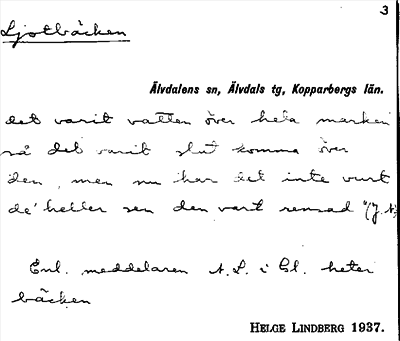 3
Ljotbäcken
Älvdalens sn, Älvdals tg, Kopparbergs län.
det varit vatten över hela marken
så det varit slut komma över
den, men nu har det inte vurt
de' heller sen den vart rensad" (J. A.)
Enl. meddelaren A. L. i Bl. heter
bäcken
HELGE LINDBERG 1937.